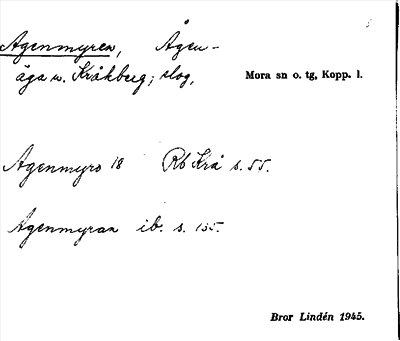 Agenmyren, Ågen-
äga v. Kråkberg; slog,
Mora sn o. tg, Kopp. l.
Agenmyro 18 Rb Krå s. 55.
Agenmyran ib. s. 135.
Bror Lindén 1945.